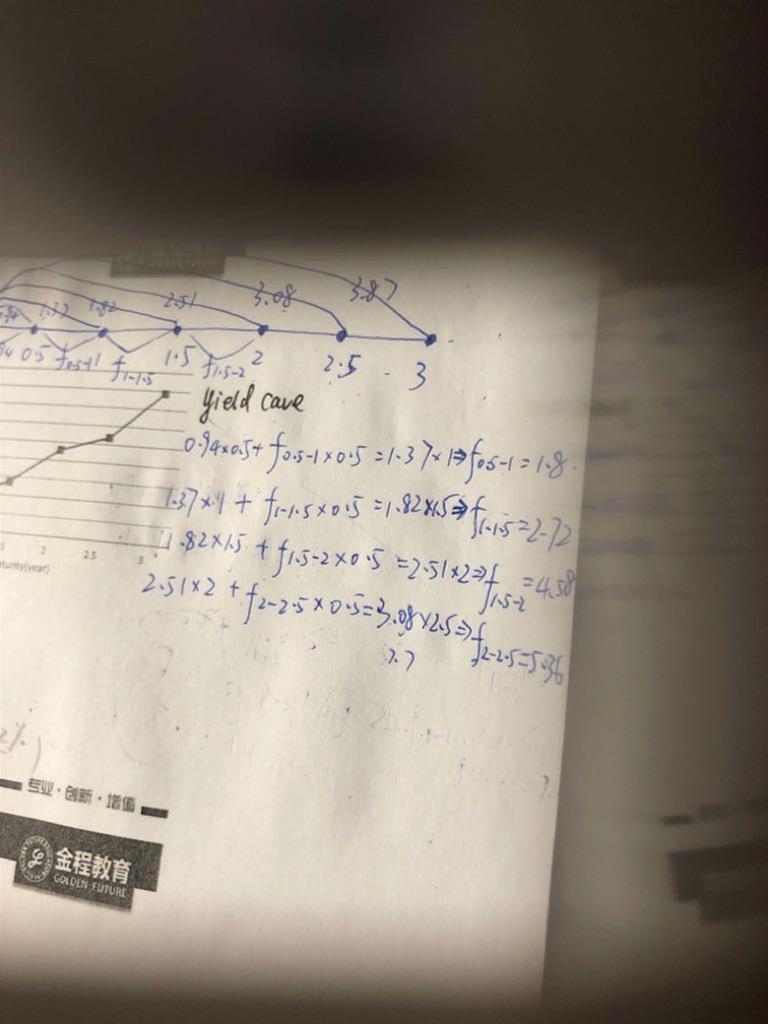 GOLDEN FUTURE
1.37 1.82 2.51 3.08 3.87
0.5 f0.5-1 f1-1.5 1.5 f1.5-2 2 2.5 3
Yield cave
0.94×0.5+f0.5-1×0.5=1.37×1⇒f0.5-1=1.8.
1.37×1+f1-1.5×0.5=1.82×1.5⇒f1-1.5=2.72
1.82×1.5+f1.5-2×0.5=2.51×2⇒f1.5-2=4.58
2.51×2+f2-2.5×0.5=3.08×2.5⇒f2-2.5=5.36
7.7
2 2.5 3
turity(year)
2%)
专业·创新·增值
金程教育
GOLDEN FUTURE